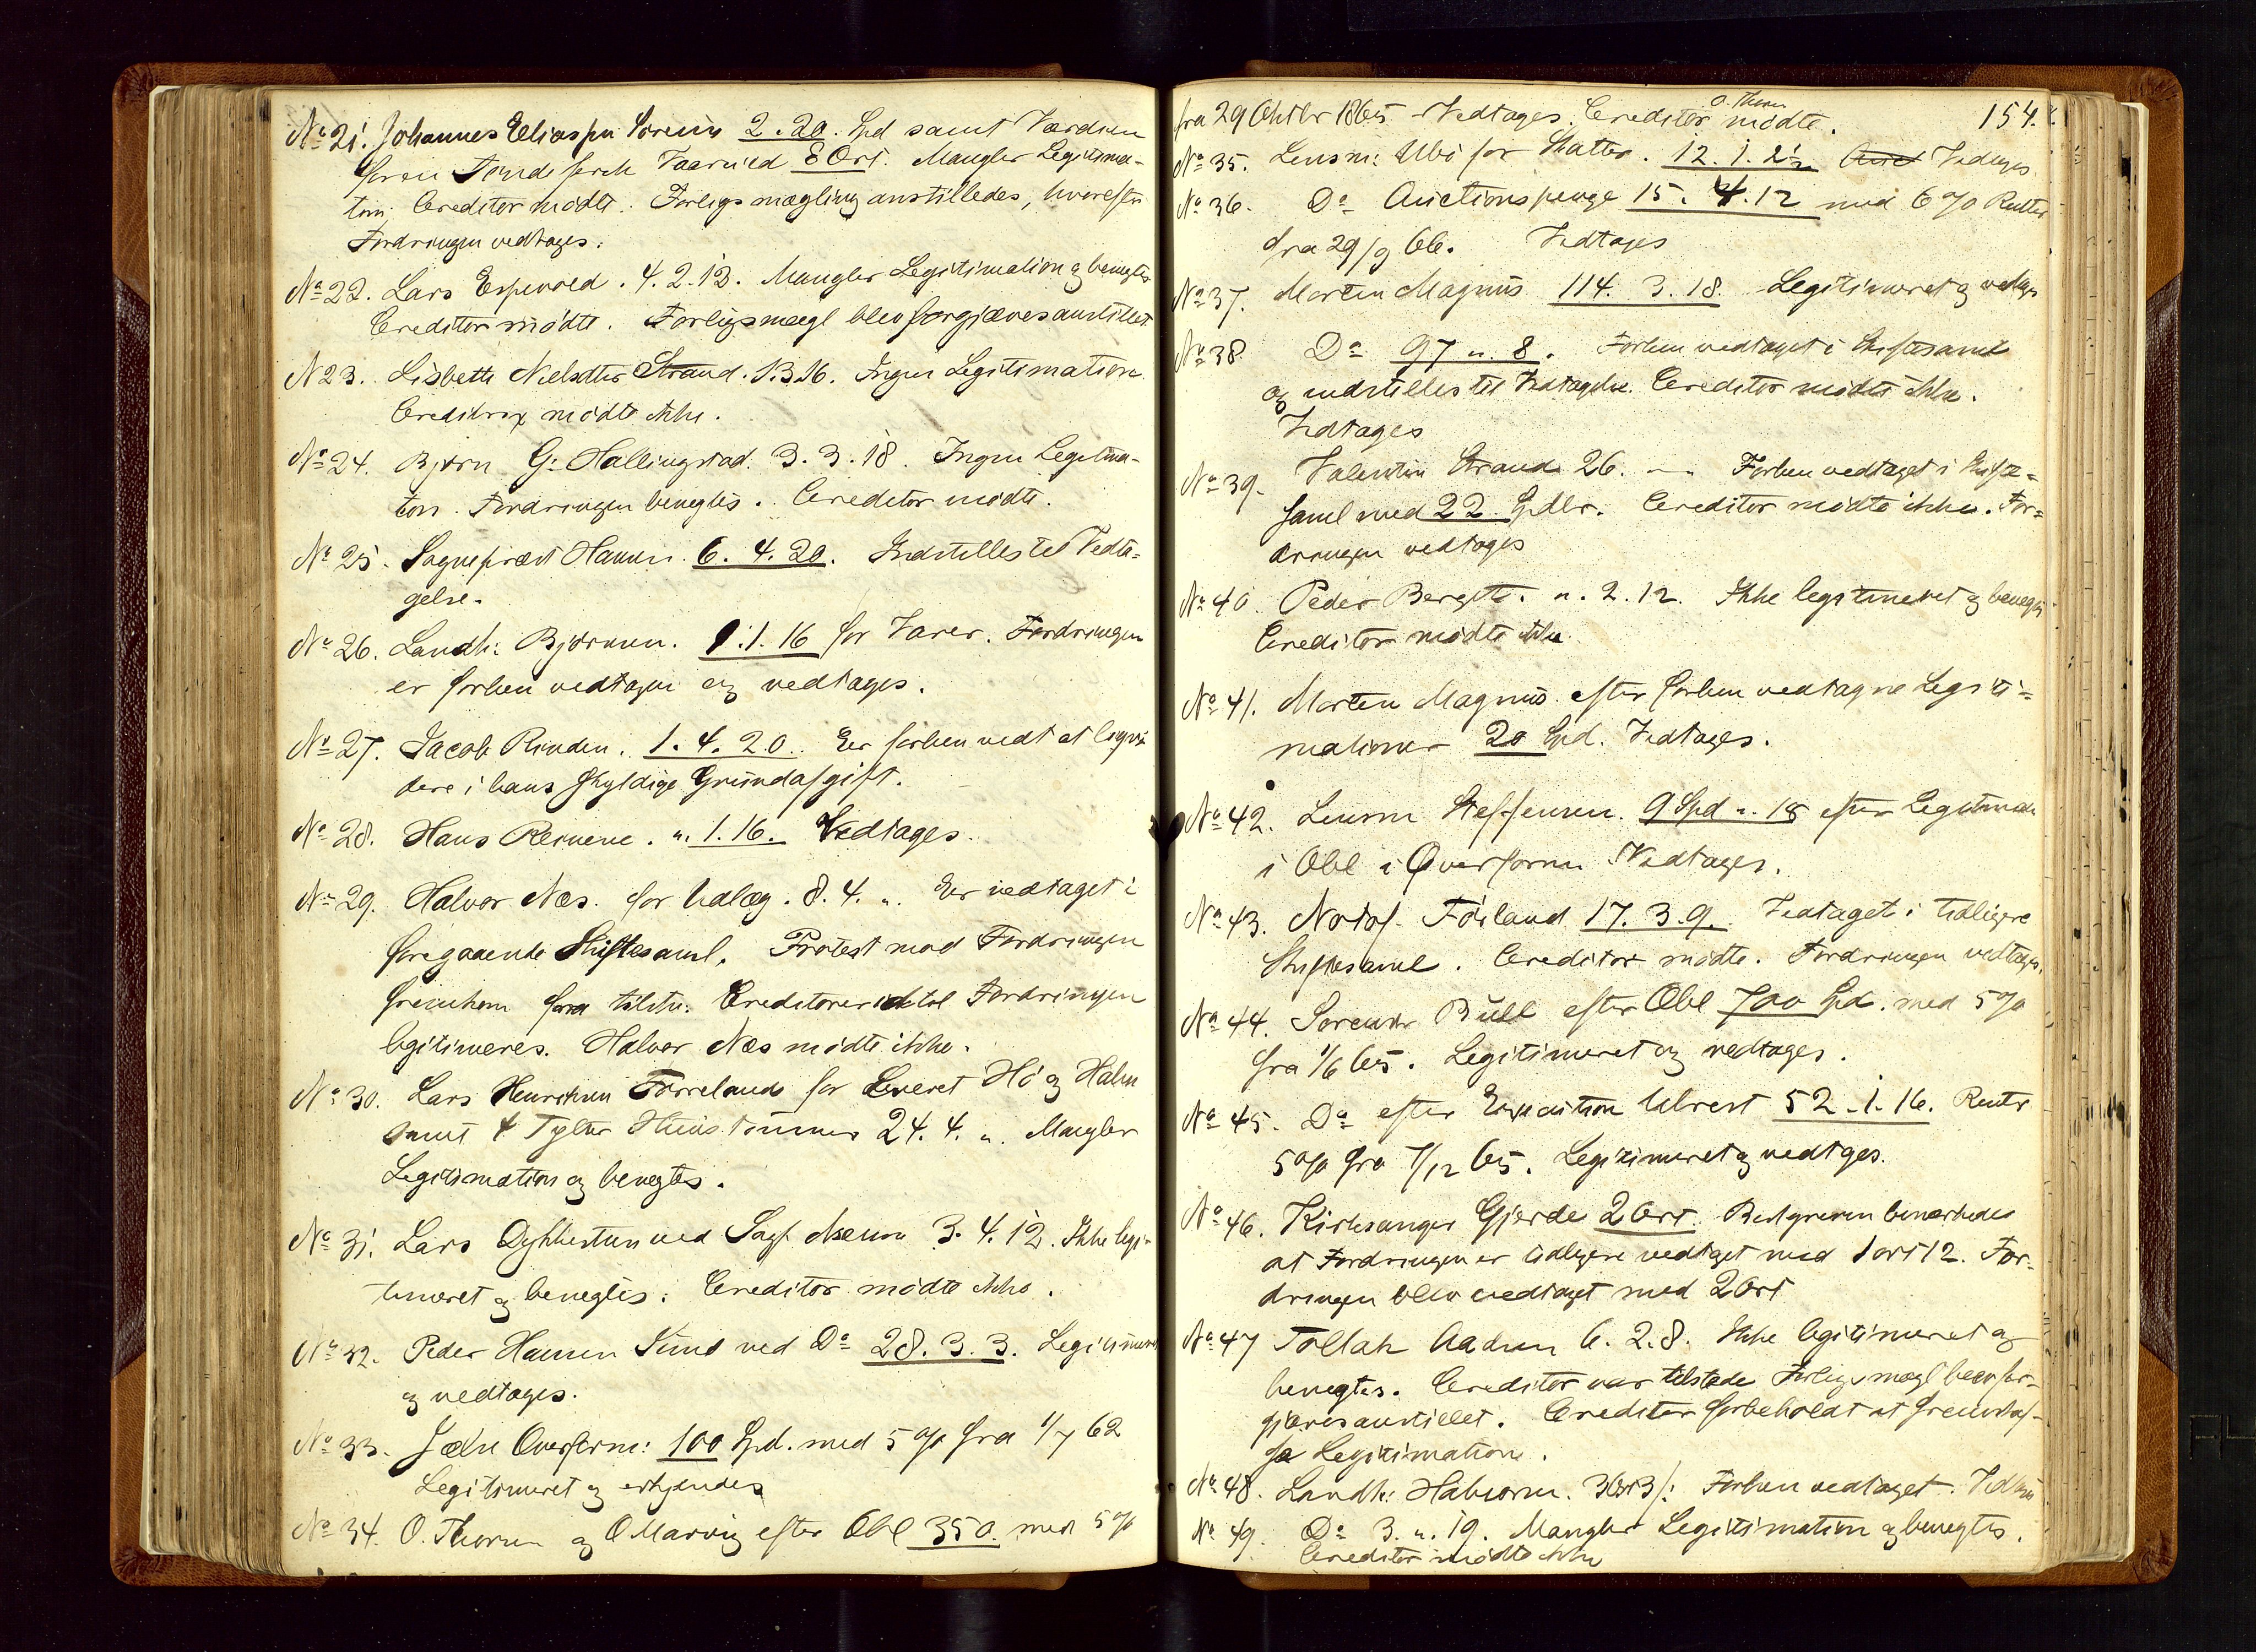 No 21. Johannes Eliassen Sørenes 2. 20. Spd samt Værdien
for en Tønde fersk Vaarsild 8 Ort. Mangler Legitima-
tion. Creditor mødte. Forligsmægling anstilledes, hvorefter
Fordringen vedtages.
No 22. Lars Espevold. 4. 2. 12. Mangler Legitimation og benegtes
Creditor mødte. Forligsmægl blev forgjæves anstillet.
No 23. Lisbeth Nielsdtr Strand. 1.3.16. Ingen Legitimation
Creditrix mødte ikke.
No 24. Bjørn G. Hallingstad. 3. 3. 18. Ingen Legitima-
tion. Fordringen benegtes. Creditor mødte.
No 25. Sognepræst Hansen. 6. 4. 20. Indstilles til Vedta-
gelse.
No 26. Landh: Bjørnsen. 1. 1. 16 for Varer. Fordringen
er forhen vedtagen og vedtages.
No 27. Jacob Rinden. 1. 4. 20. Er forhen vedt at liqvi-
dere i hans skyldige Grundafgift.
No 28. Hans . ". 1. 16. Vedtages.
No 29. Halvor Næs. for Udlæg. 8. 4. ". Er vedtaget i
foregaaende Skiftesaml. Protest mod Fordringen
fremkom fra tilstv: Creditorer idet Fordringen
legitimeres. Halvor Næs mødte ikke.
No 30. Lars Henriksen Tørreland for Leveret Hø og Halm
samt 4 Tylter Huustømmer 24. 4. ". Mangler
Legitimation og benegtes.
No 31. Lars ved Sagf. 3. 4. 12. Ikke legi-
timeret og benegtes. Creditor mødte ikke.
No 32. Peder Hansen Sund ved Do 28. 3. 3. Legitimeret
og vedtages.
No 33. Overform: 100 Spd. med 5 % fra 1/7 62
Legitimeret og erkjendes
No 34. O. Thorsen og O Marvig efter Obl 350. med 5 %
154.
fra 29 Oktbr 1865 Vedtages. Creditor O. Thorsen mødte.
No 35. Lensm: Ubø for Skatter. 12. 1. 2½ Vedtages
No 36. Do Auctionspenge 15. 4. 12 med 6 % Renter
fra 29/9 66. Vedtages
No 37. Morten Magnus 114. 3. 18 Legitimeret og vedtages
No 38 Do 97 ". 8. Forhen vedtaget i Skiftesaml
og indstilles til Vedtagelse. Creditor mødte ikke.
Vedtages
No 39. Valentin Strand 26. " " Forhen vedtaget i Skifte-
saml med 22 Spdlr. Creditor mødte ikke. For-
dringen vedtages
No 40. Peder . ". 2. 12. Ikke legitimeret og benegtes
Creditor mødte ikke.
No 41. Morten Magnus efter forhen vedtagne Legiti-
mationer 20 Spd. Vedtages.
No 42. Lensm Steffensen. 9 Spd ". 18 efter Legitimation
i Obl i Overform Vedtages.
No 43. Førland 17. 3. 9. Vedtaget i tidligere
Skiftesaml. Creditor mødte. Fordringen vedtages.
No 44. Sorenskr Bull efter Obl 700 Spd. med 5 %
fra 1/6 65. Legitimeret og vedtages.
No 45. Do efter 52. 1. 16. Renter
5 % fra 7/12 65. Legitimeret og vedtages.
No 46. Kirkesanger Gjerde 2 Ort. Bestyreren bemærkede
at Fordringen er tidligere vedtaget med 1 ort 12. For-
dringen blev vedtaget med 2 Ort
No 47 Tollak Aadsen 6. 2. 8. Ikke legitimeret og
benegtes. Creditor var tilstede Forligsmægl blev for-
gjæves anstillet. Creditor forbeholdt at fremskaf-
fe Legitimation.
No 48. Landh: . 3 Ort 3 s: Forhen vedtaget.
No 49. Do 3. ". 19. Mangler Legitimation og benegtes.
Creditor mødte ikke